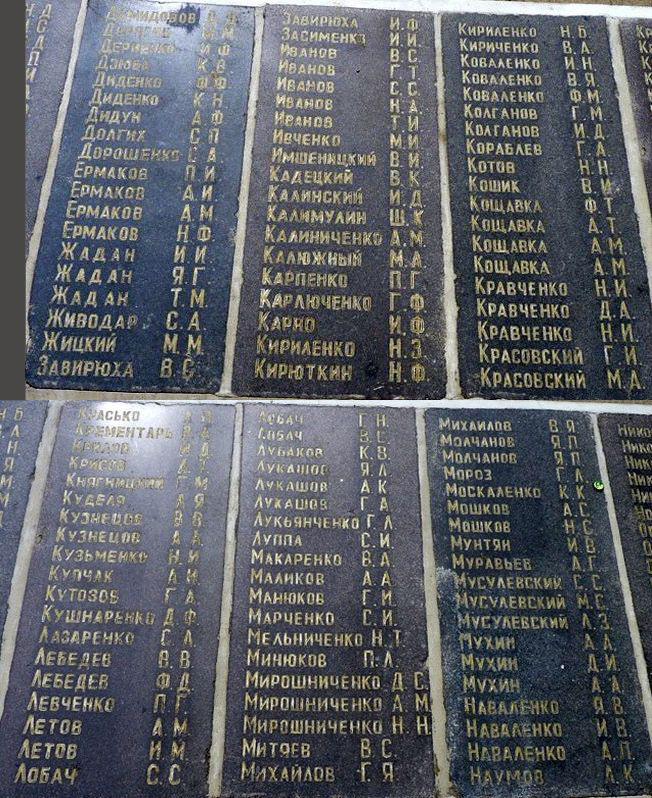 Демидовов
Дериенко И.Ф
Дзюба К.В
Диденко Ф.Ф
Диденко К.Н.
Дидун А.Ф
Долгих С.П
Дорошенко С.А.
Ермаков П.И
Ермаков А.И.
Ермаков А.М.
Ермаков Н.Ф.
Жадан И.И
Жадан Я.Г
Жадан Т.М.
Живодар С.А.
Жицкий М.М.
Завирюха В.С.
Завирюха И.Ф
Засименко И.И.
Иванов В.С.
Иванов Г.Т
Иванов С.С.
Иванов Н.А.
Иванов Т.И
Ивченко М.И
Имшеницкий В.И.
Кадецкий В.К
Калинский И.Д
Калимулин Ш.К
Калиниченко А.М.
Калюжный М.А.
Карпенко П.Г
Карлюченко Г.Ф
Карко И.Ф
Кириленко Н.З.
Кирюткин Н.Ф.
Кириленко Н.Б
Кириченко В.А.
Коваленко И.Н
Коваленко В.Я
Коваленко Ф.М.
Колганов Г.М.
Колганов И.Д
Кораблев Г.А
Котов Н.Н.
Кошик В.И
Кощавка Ф.Т
Кощавка А.Т.
Кощавка А.М
Кощавка А.М.
Кравченко Н.И
Кравченко Д.А.
Кравченко Н.И.
Красовский Г.И.
Красовский М.Д.
Красько
Крементарь
Крисов
Княгницкий Г.М
Куделя А.Я
Кузнецов В.В
Кузнецов А.А.
Кузьменко Н.И
Купчак А.И.
Кутозов Г.А.
Кушнаренко Д.Ф.
Лазаренко С.А.
Лебедев В.В
Лебедев Ф.Д
Левченко П.Г.
Летов А.М
Летов И.М.
Лобач С.С.
Лобач Г.Н.
Лобач В.С.
Лубаков К.В.
Лукашов Я.Л
Лукашов А.К
Лукашов Г.А
Лукьянченко Г.Л
Луппа С.И
Макаренко В.А.
Маликов А.А.
Манюков Г.И.
Марченко С.И.
Мельниченко Н.Т.
Минюков П.Л.
Мирошниченко Д.С.
Мирошниченко А.М
Мирошниченко Н.Н
Митяев В.С.
Михайлов Г.Я
Михайлов В.Я
Молчанов Я.П
Молчанов Я.П
Мороз Г.Л.
Москаленко К.К
Мошков А.С.
Мошков Н.С.
Мунтян И.В
Муравьев А.Г.
Мусулевский С.С.
Мусулевский М.С.
Мусулевский Л.З.
Мухин А.А.
Мухин Д.И.
Мухин А.А.
Наваленко Я.В
Наваленко И.В.
Наваленко А.П.
Наумов Л.К